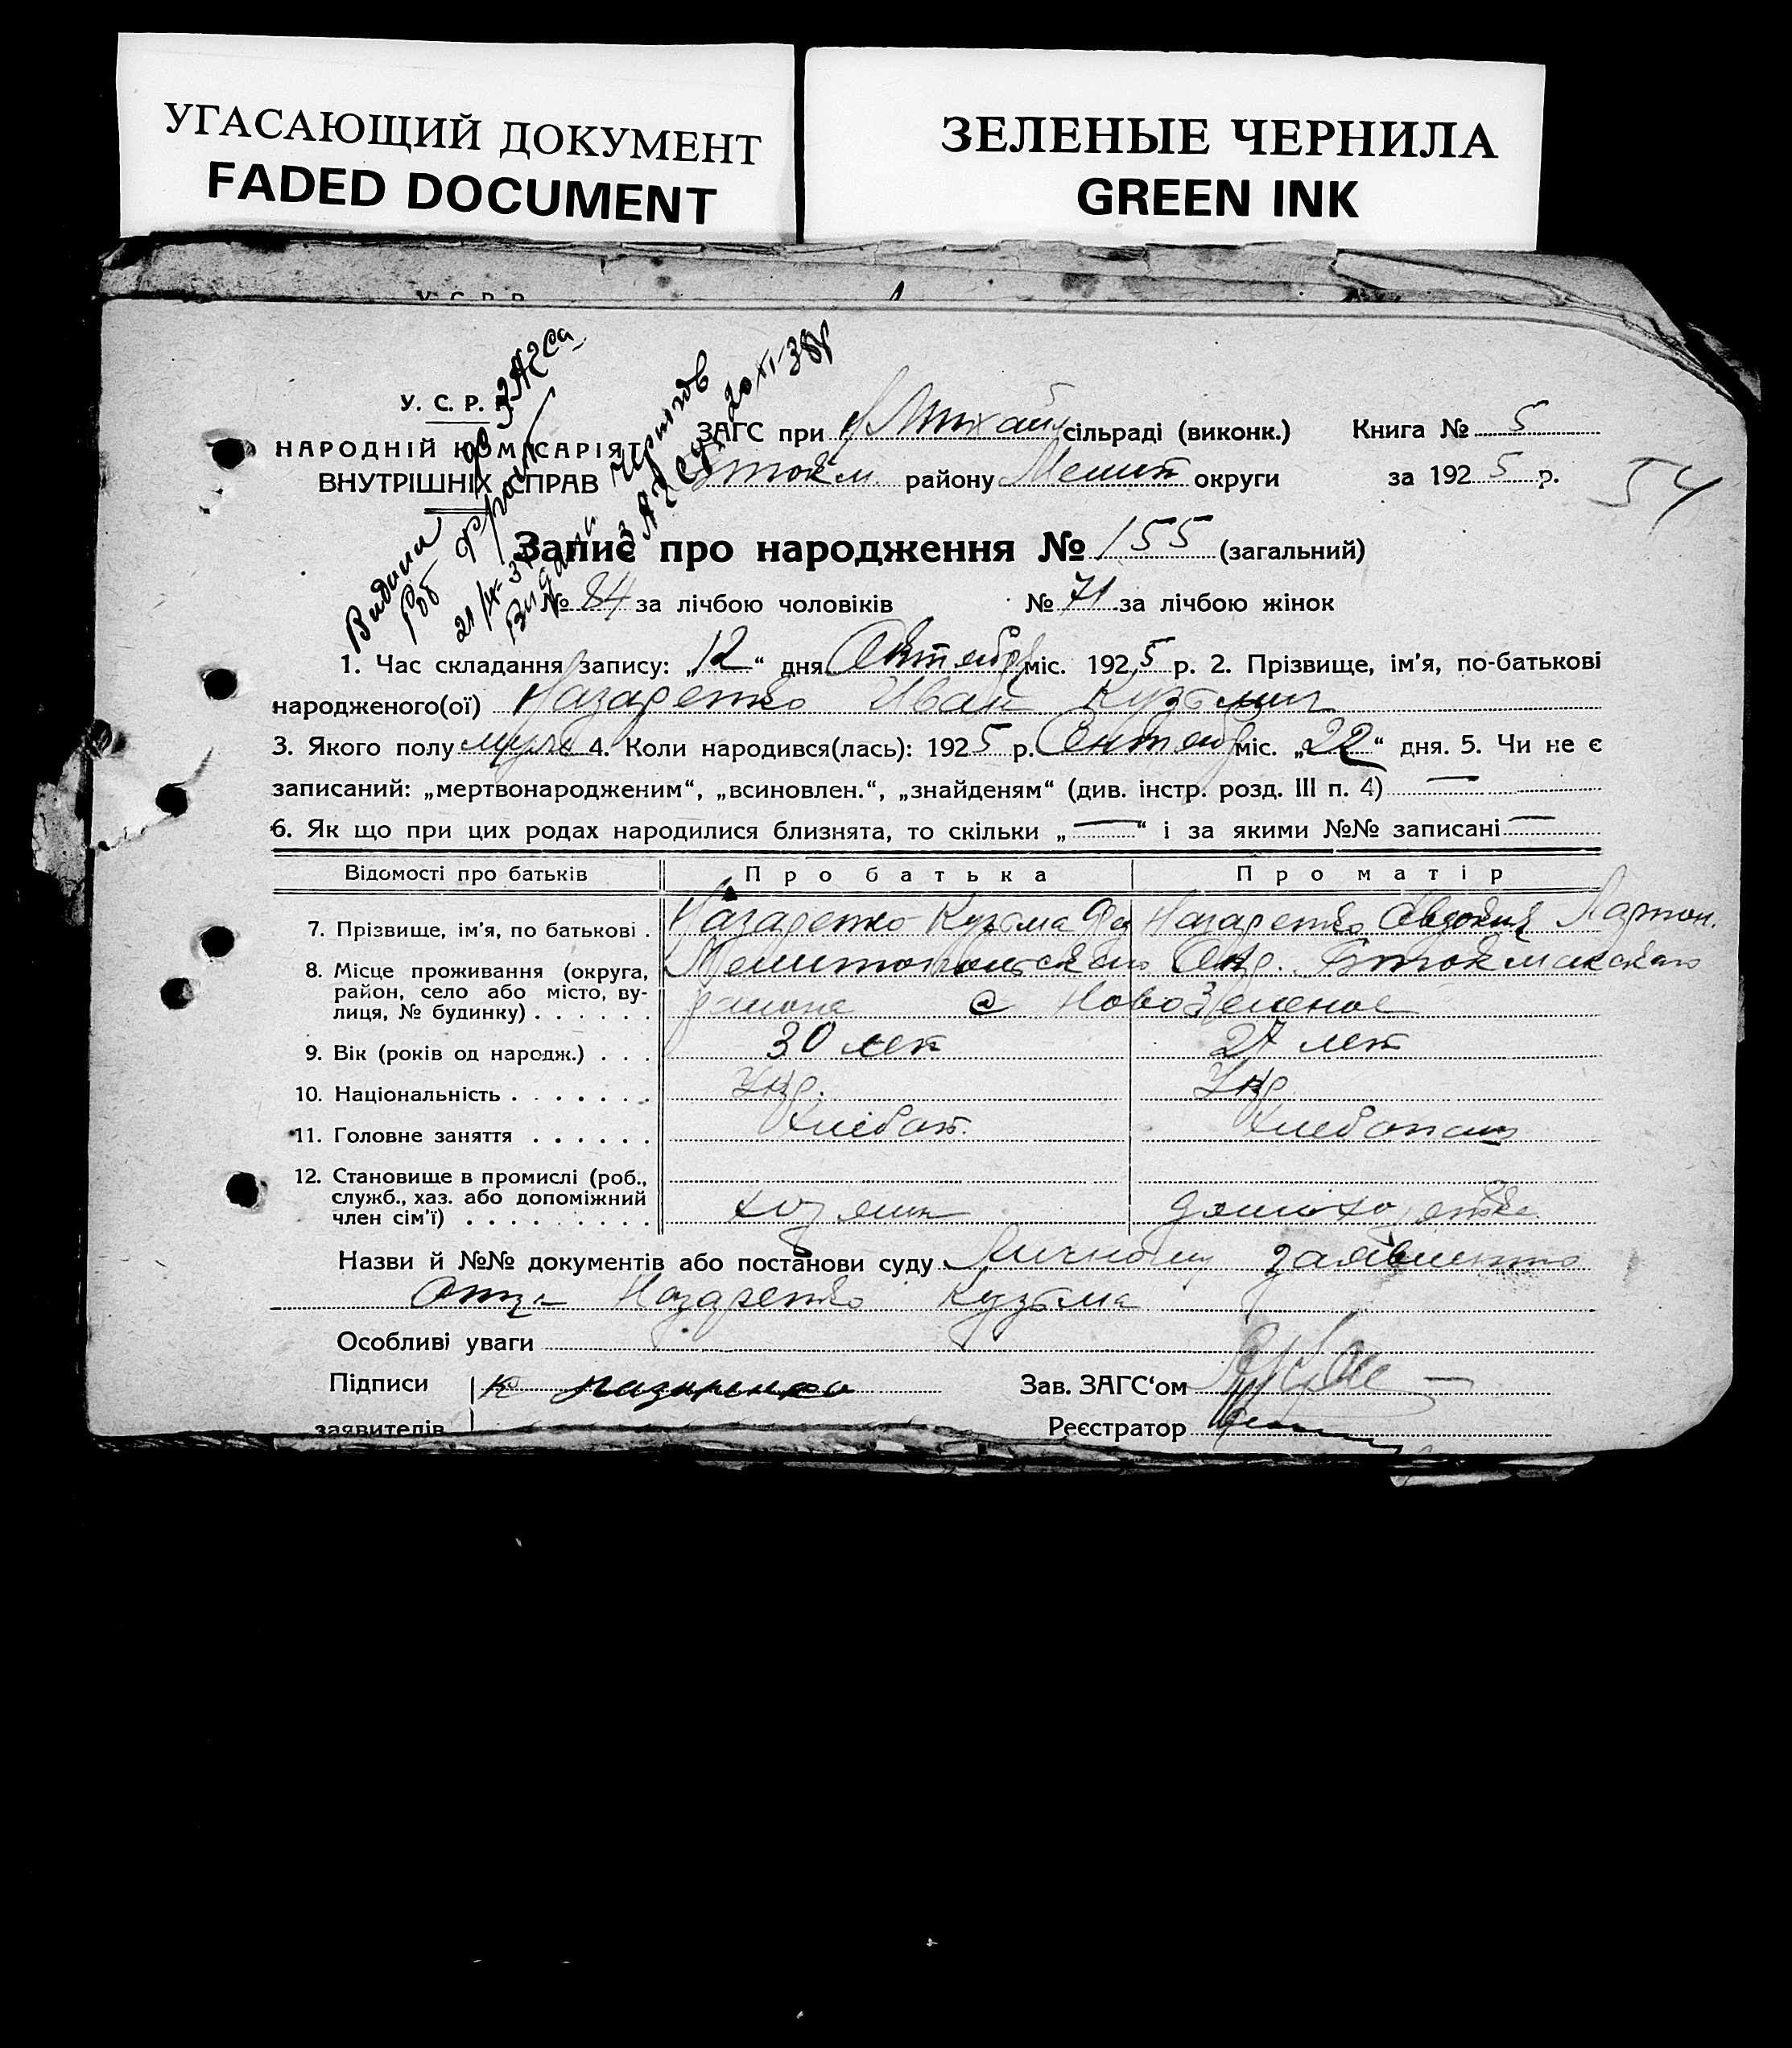 УГАСАЮЩИЙ ДОКУМЕНТ
FADED DOCUMENT
ЗЕЛЕНЫЕ ЧЕРНИЛА
GREEN INK
У. С. Р. Р.
У. С. Р.
НАРОДНІЙ КОМІСАРІЯТ
ВНУТРІШНІХ СПРАВ
ЗАГС при Михайл сільраді (виконк.)
Втокм. району Мелит округи
Книга № 5
за 1925 р.
54
Видана
21/4-3
20 XI-38р
Запис про народження № 155 (загальний)
№ 84 за лічбою чоловіків № 71 за лічбою жінок
1. Час складання запису: „12“ дня Октября міс. 1925 р. 2. Прізвище, ім’я, по-батькові
народженого(ої) Назаренко Иван Кузьмич
3. Якого полу муж 4. Коли народився(лась): 1925 р. Сентябр міс. „22“ дня. 5. Чи не є
записаний: „мертвонародженим“, „всиновлен.“, „знайденям“ (див. інстр. розд. III п. 4) —
6. Як що при цих родах народилися близнята, то скільки „—“ і за якими №№ записані —
Відомості про батьків Про батька Про матір
7. Прізвище, ім’я, по батькові . Назаренко Кузьма Фед Назаренко Евдокия Ларион.
8. Місце проживання (округа, район, село або місто, вулиця, № будинку) . . . . . . Мелитопольского Окр. Втокмакского
района с Новозеленое
9. Вік (років од народж.) . . . 30 лет 27 лет
10. Національність . . . . . . . Укр. Укр.
11. Головне заняття . . . . . . Хлебоп. Хлебопаш
12. Становище в промислі (роб.,
служб., хаз. або допоміжний
член сім’ї) . . . . . . . . . хозяин домохозяйка
Назви й №№ документів або постанови суду Личному заявлению
отца Назаренко Кузьма
Особливі уваги
Підписи К Назаренко Зав. ЗАГС‘ом
заявителів Реєстратор